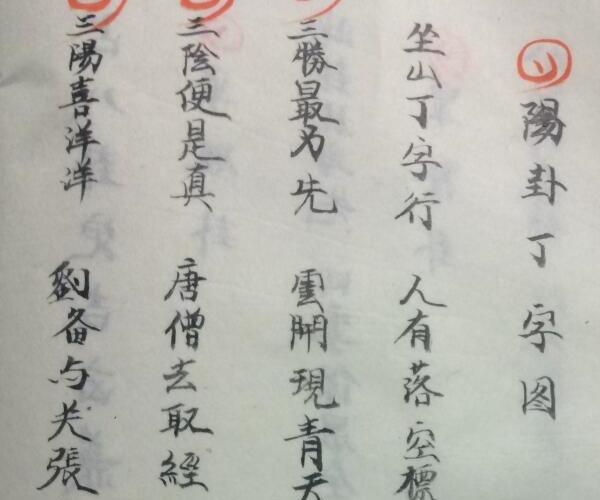 陽卦丁字图
坐山丁字行 人有落空標
三勝最为先 雲開現青天
三陰便是真 唐僧去取経
三陽喜洋洋 劉备与关張